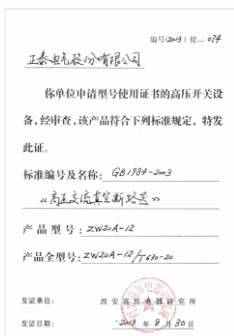 编号(2013)使—074
正泰电气股份有限公司
你单位申请型号使用证书的高压开关设
备,经审查,该产品符合下列标准规定,特发
此证。
标准编号及名称:GB1984-2003
《高压交流真空断路器》
产品型号:ZW20A-12
产品全型号:ZW20A-12/T630-20
发证单位:西安高压电器研究所
发证日期:2013年8月30日